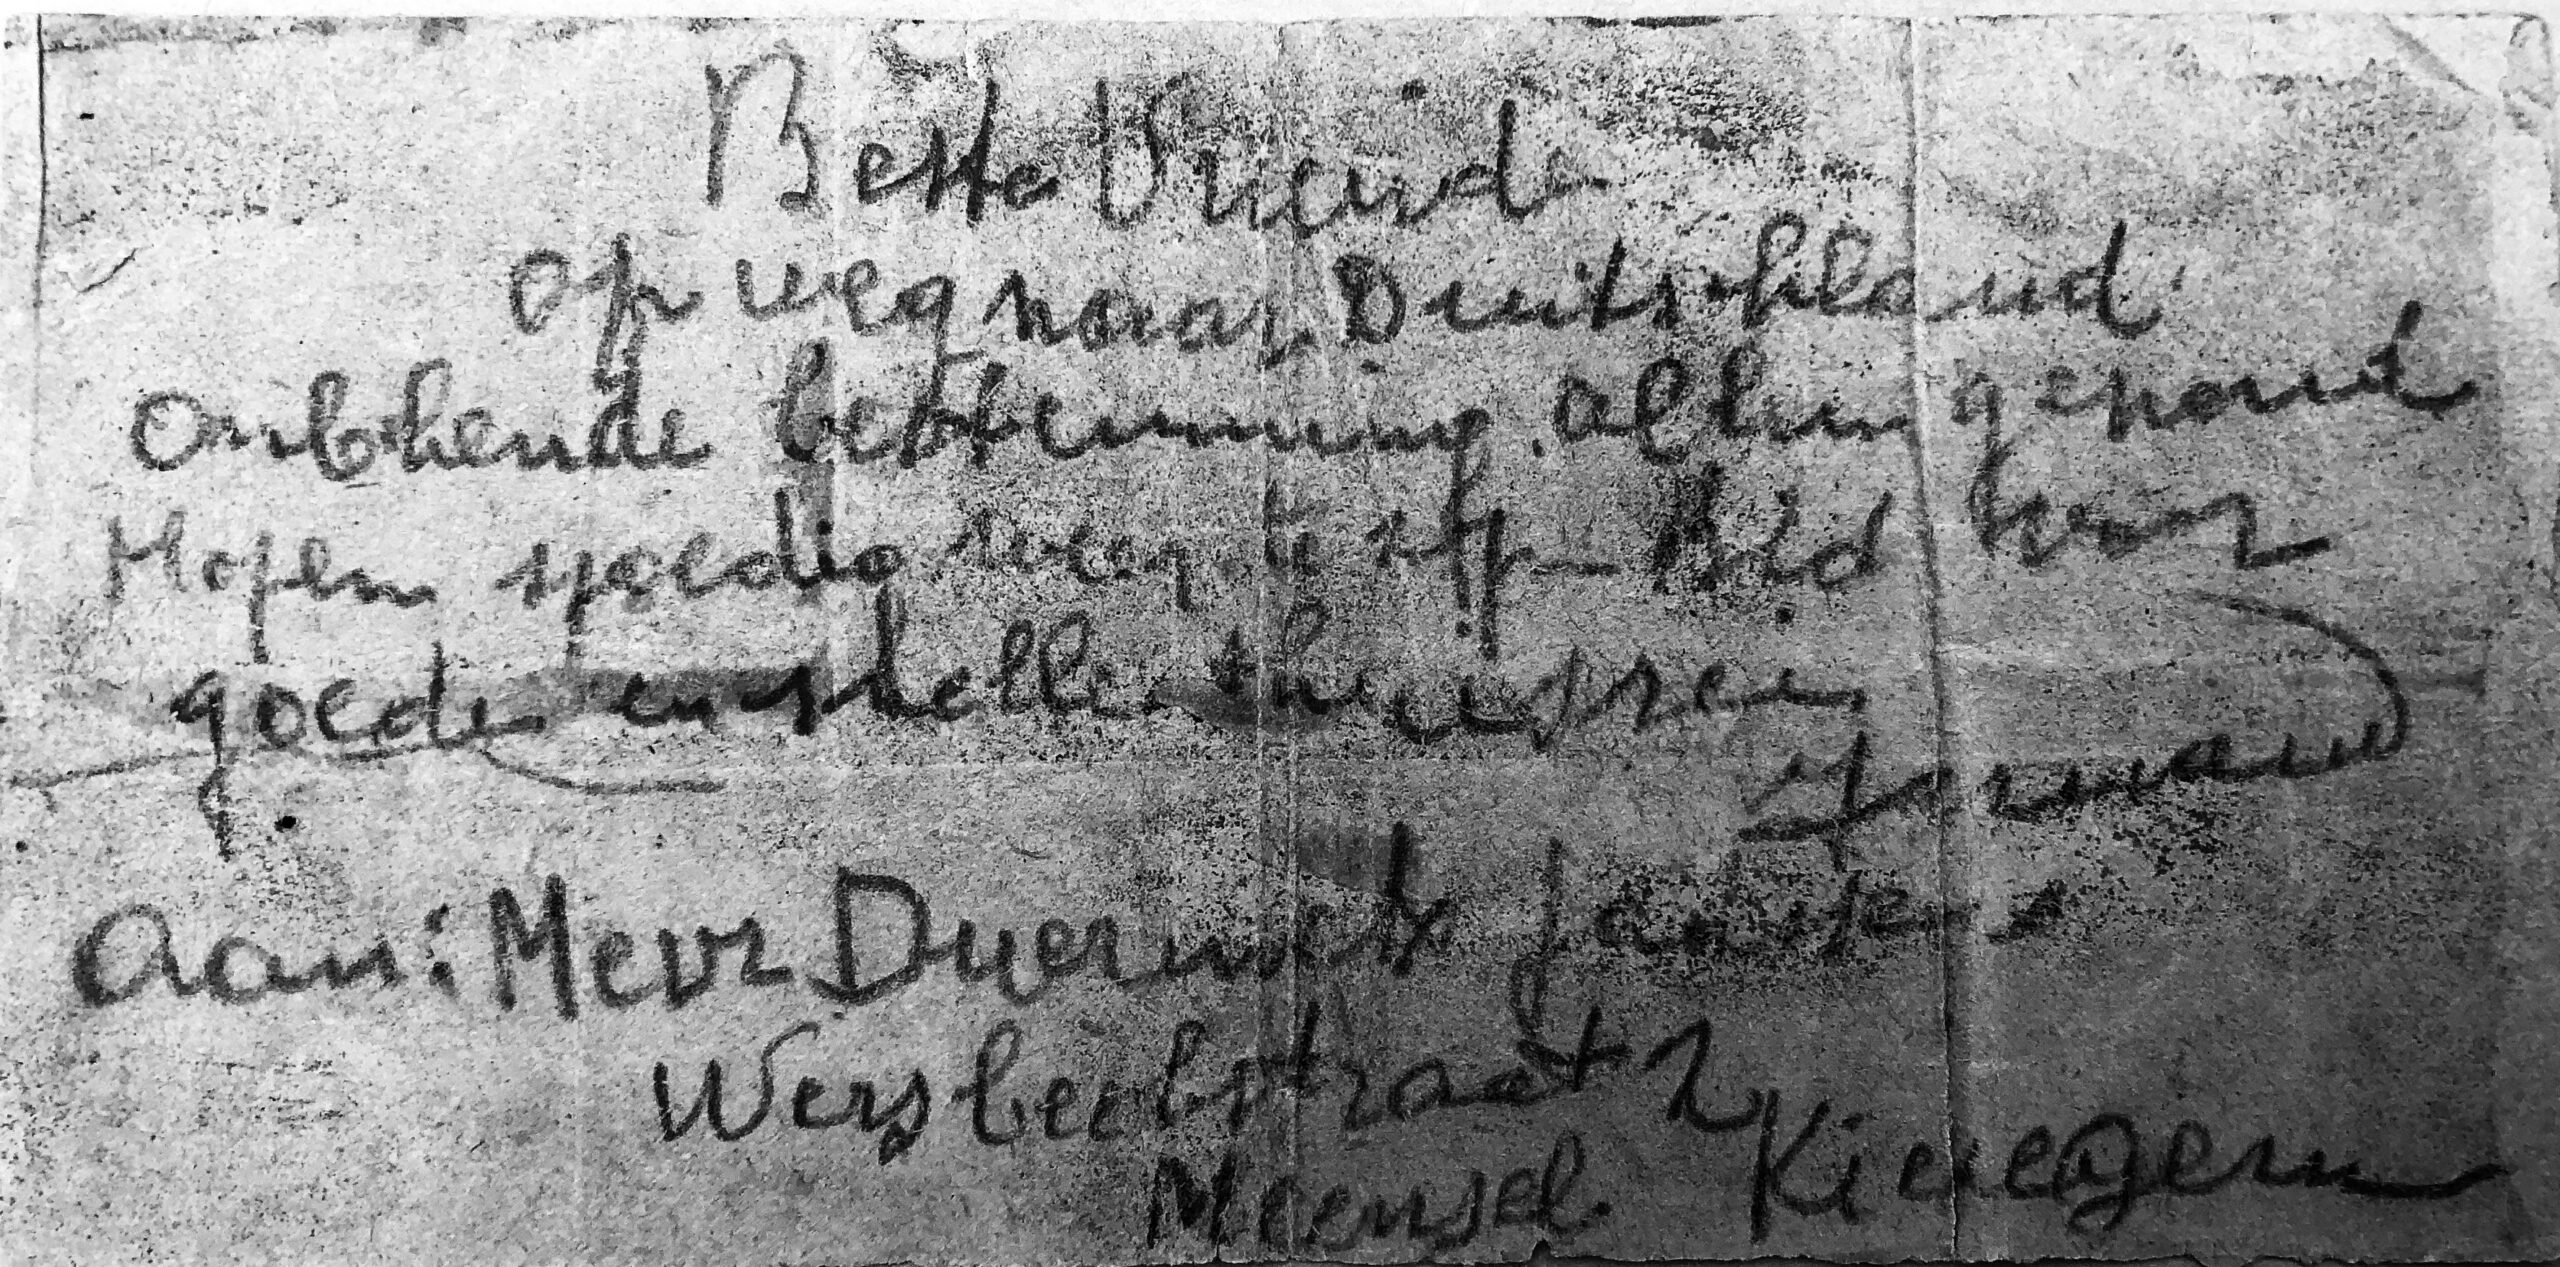 Beste Vriend
op weg naar Duitschland
onbekende bestemming. allen gezond
Hopen spoedig weer Bid voor
goede en snelle thuisreis
Armand
Aan: Mevr Duerinckx Janssens
Wersbeekstraat 2
Meensel Kieregem